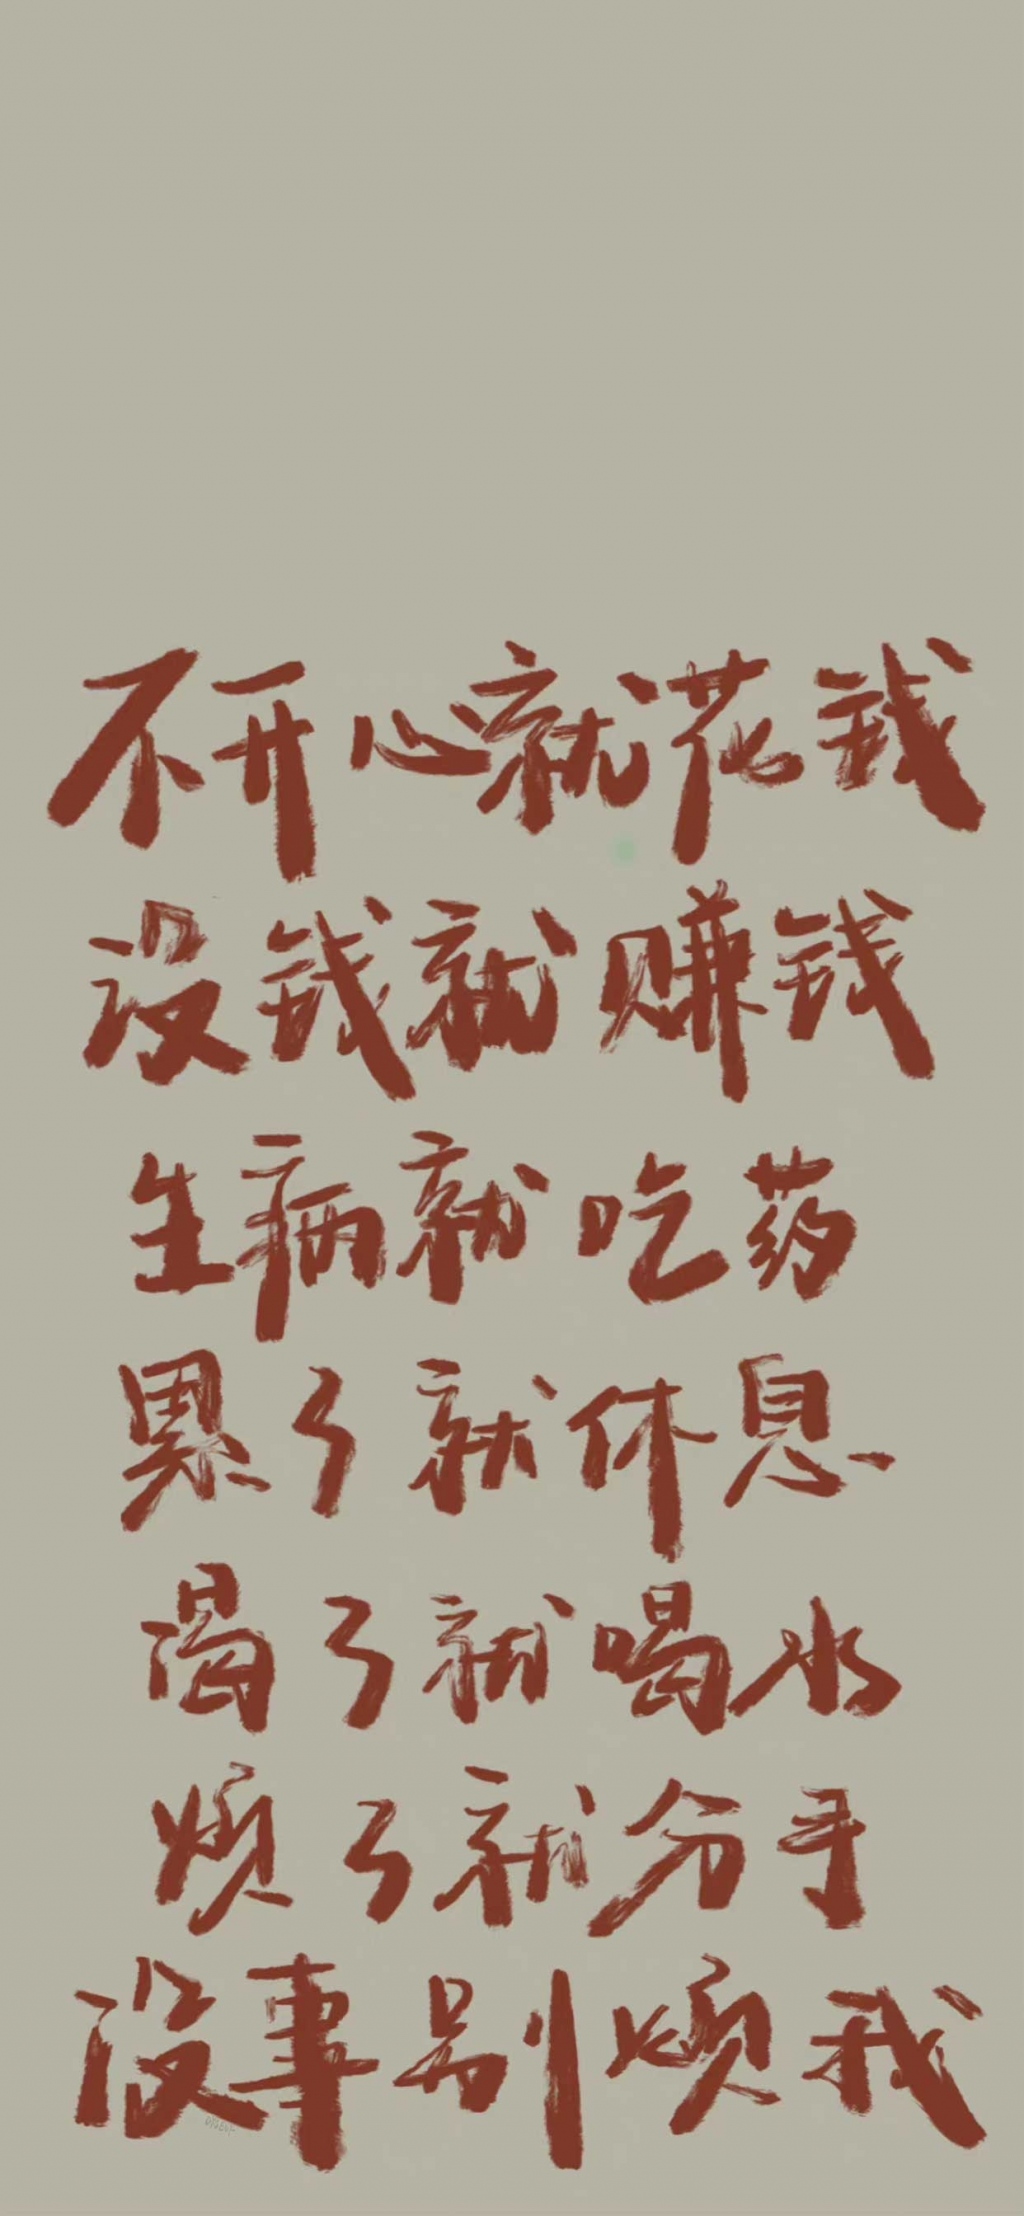 不开心就花钱
没钱就赚钱
生病就吃药
累了就休息
渴了就喝水
烦了就分手
没事别烦我